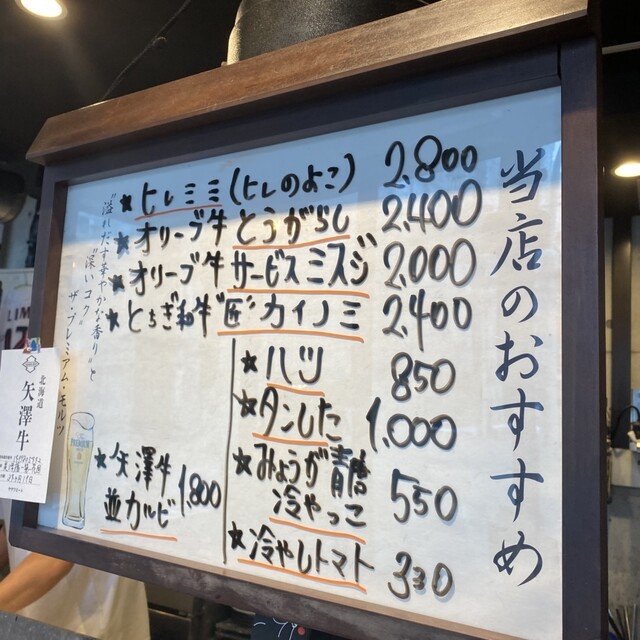 当店のおすすめ
★ヒレミミ(ヒレのよこ) 2.800
★オリーブ牛 とうがらし 2.400
★オリーブ牛 サービスミスジ 2.000
★とちぎ和牛"匠"カイノミ 2.400
★ハツ 850
★タンした 1.000
★みょうが青唐
冷やっこ 550
★冷やしトマト 330
★矢澤牛
並カルビ 1800
"溢れだす華やかな香りと
"深いコク"
ザ・プレミアム・モルツ
北海道
矢澤牛